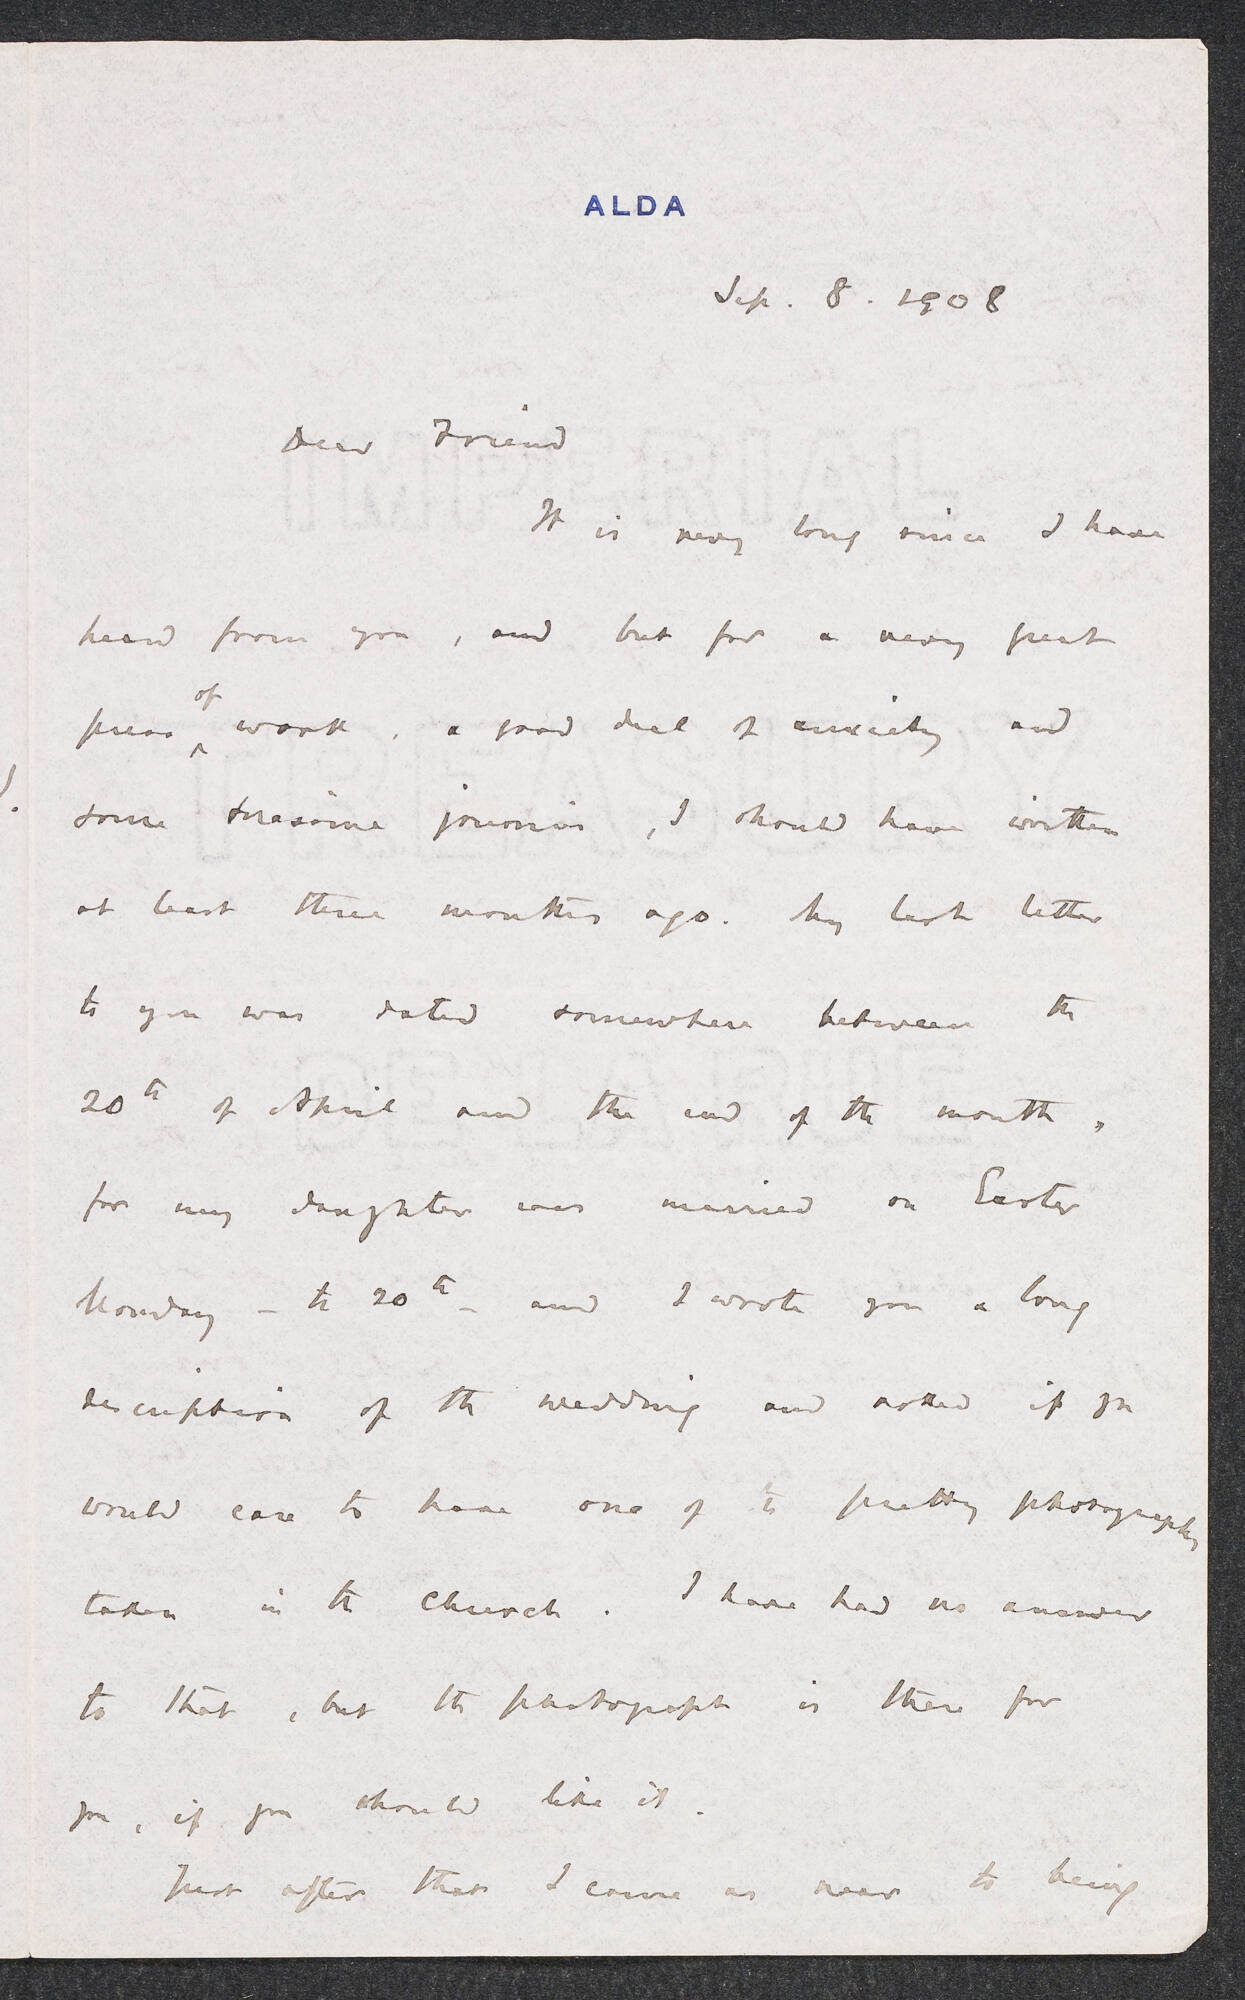 ALDA
Sep. 8. 1908
Dear Friend
It is very long since I have
heard from you, and but for a very great
press of work, a good deal of anxiety and
some tiresome journies, I should have written
at least three months ago. My last letter
to you was dated somewhere between the
20th of April and the end of the month,
for my daughter was married on Easter
Monday – the 20th – and I wrote you a long
description of the wedding and asked if you
would care to have one of the pretty photographs
taken in the church. I have had no answer
to that, but the photograph is there for
you, if you should like it.
Just after that I came as near to being